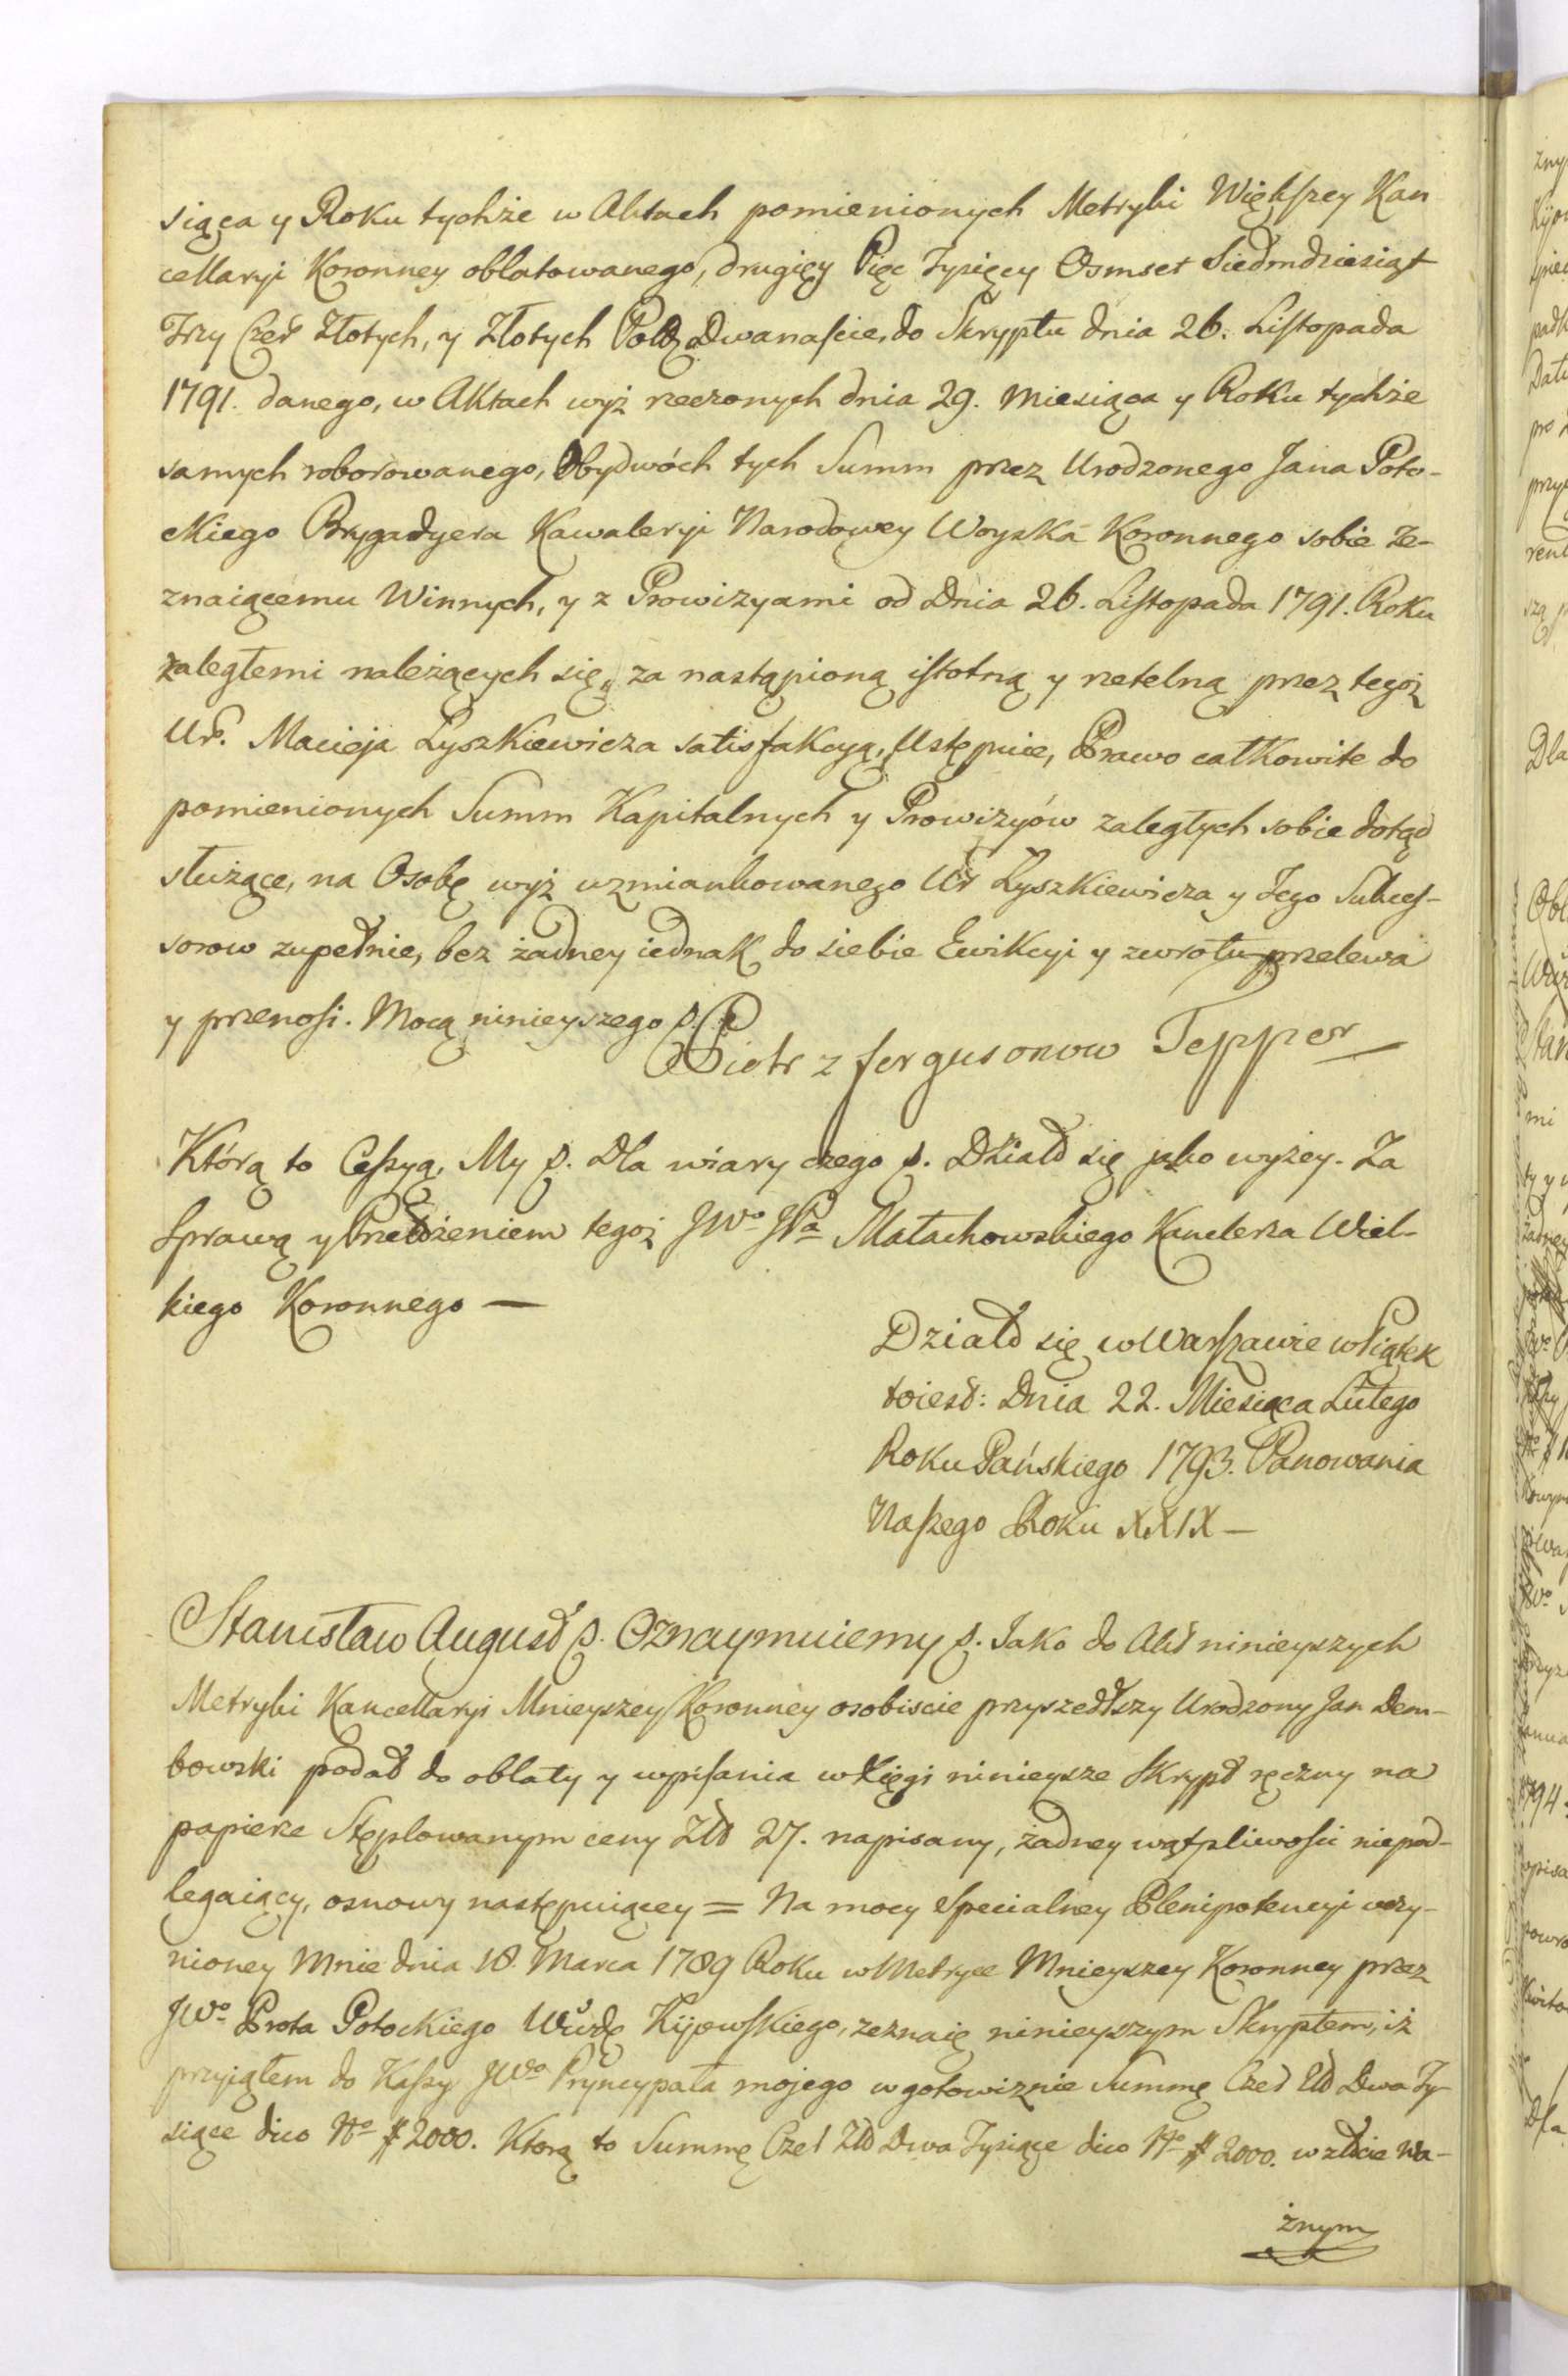 siąca y Roku tychże w Aktach pomienionych Metryki Więkſzey Kan
cellaryi Koronney oblatowanego, drugiey Pięc Tysięcy Osmset Siedmdziesiąt
Trzy Czer Złotych, y Złotych Pols Dwanaſcie, do Skryptu dnia 26. Liſtopada
1791. danego, w Aktach wyż rzeczonych dnia 29. Miesiąca y Roku tychże
samych roborowanego, Obydwóch tych Summ przez Urodzonego Jana Poto-
ckiego Brygadyera Kawaleryi Narodowey Woyska Koronnego sobie ze-
znaiącemu Winnych, y z Prowizyami od Dnia 26. Liſtopada 1791. Roku
zaległemi należących się, za nastąpioną iſtotną y rzetelną przez tegoż
Ur. Macieja Łyszkiewicza satisfakcyą, Ustępuie, Prawo całkowite do
pomienionych Summ Kapitalnych y Prowizyów zaległych sobie dotąd
służące, na Osobę wyż wzmiankowanego Ur Łyszkiewicza y Jego Sukceſ-
sorow zupełnie, bez żadney iednak do siebie Ewikcyi y zwrotu przelewa
y przenoſi. Mocą ninieyszego p.
Piotr z fergusonow Tepper
Którą to Ceſsyą, My p. Dla wiary czego p. Działo się jako wyżey. Za
Sprawą y Przełożeniem tegoż JWo JPa Małachowskiego Kanclerza Wiel-
kiego Koronnego —
Działo się w Warſzawie w Piątek
toiest: Dnia 22. Miesiąca Lutego
Roku Pańskiego 1793. Panowania
Naſzego Roku XXIX —
Stanisław August p. Oznaymuiemy p. Jako do Akt ninieyszych
Metryki Kancellaryi Mnieyszey Koronney osobiscie przyszedłszy Urodzony Jan Dem-
bowski podał do oblaty y wpiſania w Xięgi ninieysze Skrypt ręczny na
papierze Stęplowanym ceny Złł 27. napisany, żadney wątpliwoſci niepod-
legaiący, osnowy następuiącey = Na mocy Specialney Plenipotencyi uczy-
nioney Mnie dnia 18. Marca 1789 Roku w Metryce Mnieyszey Koronney przez
JWo Prota Potockiego Wwdę Kijowſkiego, zeznaię ninieyszym Skryptem, iż
przyiąłem do Kaſsy JWo Pryncypała mojego w gotowiznie Summę Czer Złł Dwa Ty-
siące dico No # 2000. Ktorą to Summę Czer Złł Dwa Tysiące dico No # 2000. w złocie Wa-
żnym